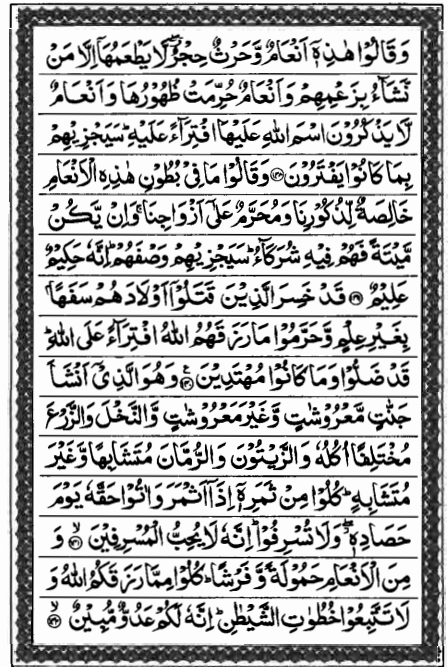 وَقَالُوْا هٰذِهٖۤ اَنْعَامٌ وَّحَرْثٌ حِجْرٌ ۖۗ لَّا يَطْعَمُهَاۤ اِلَّا مَنْ
نَّشَآءُ بِزَعْمِهِمْ وَاَنْعَامٌ حُرِّمَتْ ظُهُوْرُهَا وَاَنْعَامٌ
لَّا يَذْكُرُوْنَ اسْمَ اللّٰهِ عَلَيْهَا افْتِرَآءً عَلَيْهِ ؕ سَيَجْزِيْهِمْ
بِمَا كَانُوْا يَفْتَرُوْنَ ﴿۱۳۸﴾ وَقَالُوْا مَا فِيْ بُطُوْنِ هٰذِهِ الْاَنْعَامِ
خَالِصَةٌ لِّذُكُوْرِنَا وَمُحَرَّمٌ عَلٰۤى اَزْوَاجِنَا ۚ وَاِنْ يَّكُنْ
مَّيْتَةً فَهُمْ فِيْهِ شُرَكَآءُ ؕ سَيَجْزِيْهِمْ وَصْفَهُمْ ؕ اِنَّهٗ حَكِيْمٌ
عَلِيْمٌ ﴿۱۳۹﴾ قَدْ خَسِرَ الَّذِيْنَ قَتَلُوْۤا اَوْلَادَهُمْ سَفَهًاۢ
بِغَيْرِ عِلْمٍ وَّحَرَّمُوْا مَا رَزَقَهُمُ اللّٰهُ افْتِرَآءً عَلَى اللّٰهِ ؕ
قَدْ ضَلُّوْا وَمَا كَانُوْا مُهْتَدِيْنَ ﴿۱۴۰﴾ وَهُوَ الَّذِيْۤ اَنْشَاَ
جَنّٰتٍ مَّعْرُوْشٰتٍ وَّغَيْرَ مَعْرُوْشٰتٍ وَّالنَّخْلَ وَالزَّرْعَ
مُخْتَلِفًا اُكُلُهٗ وَالزَّيْتُوْنَ وَالرُّمَّانَ مُتَشَابِهًا وَّغَيْرَ
مُتَشَابِهٍ ؕ كُلُوْا مِنْ ثَمَرِهٖۤ اِذَاۤ اَثْمَرَ وَاٰتُوْا حَقَّهٗ يَوْمَ
حَصَادِهٖ ۖ وَلَا تُسْرِفُوْا ؕ اِنَّهٗ لَا يُحِبُّ الْمُسْرِفِيْنَ ﴿۱۴۱﴾ وَ
مِنَ الْاَنْعَامِ حَمُوْلَةً وَّفَرْشًا ؕ كُلُوْا مِمَّا رَزَقَكُمُ اللّٰهُ وَ
لَا تَتَّبِعُوْا خُطُوٰتِ الشَّيْطٰنِ ؕ اِنَّهٗ لَكُمْ عَدُوٌّ مُّبِيْنٌ ﴿۱۴۲﴾